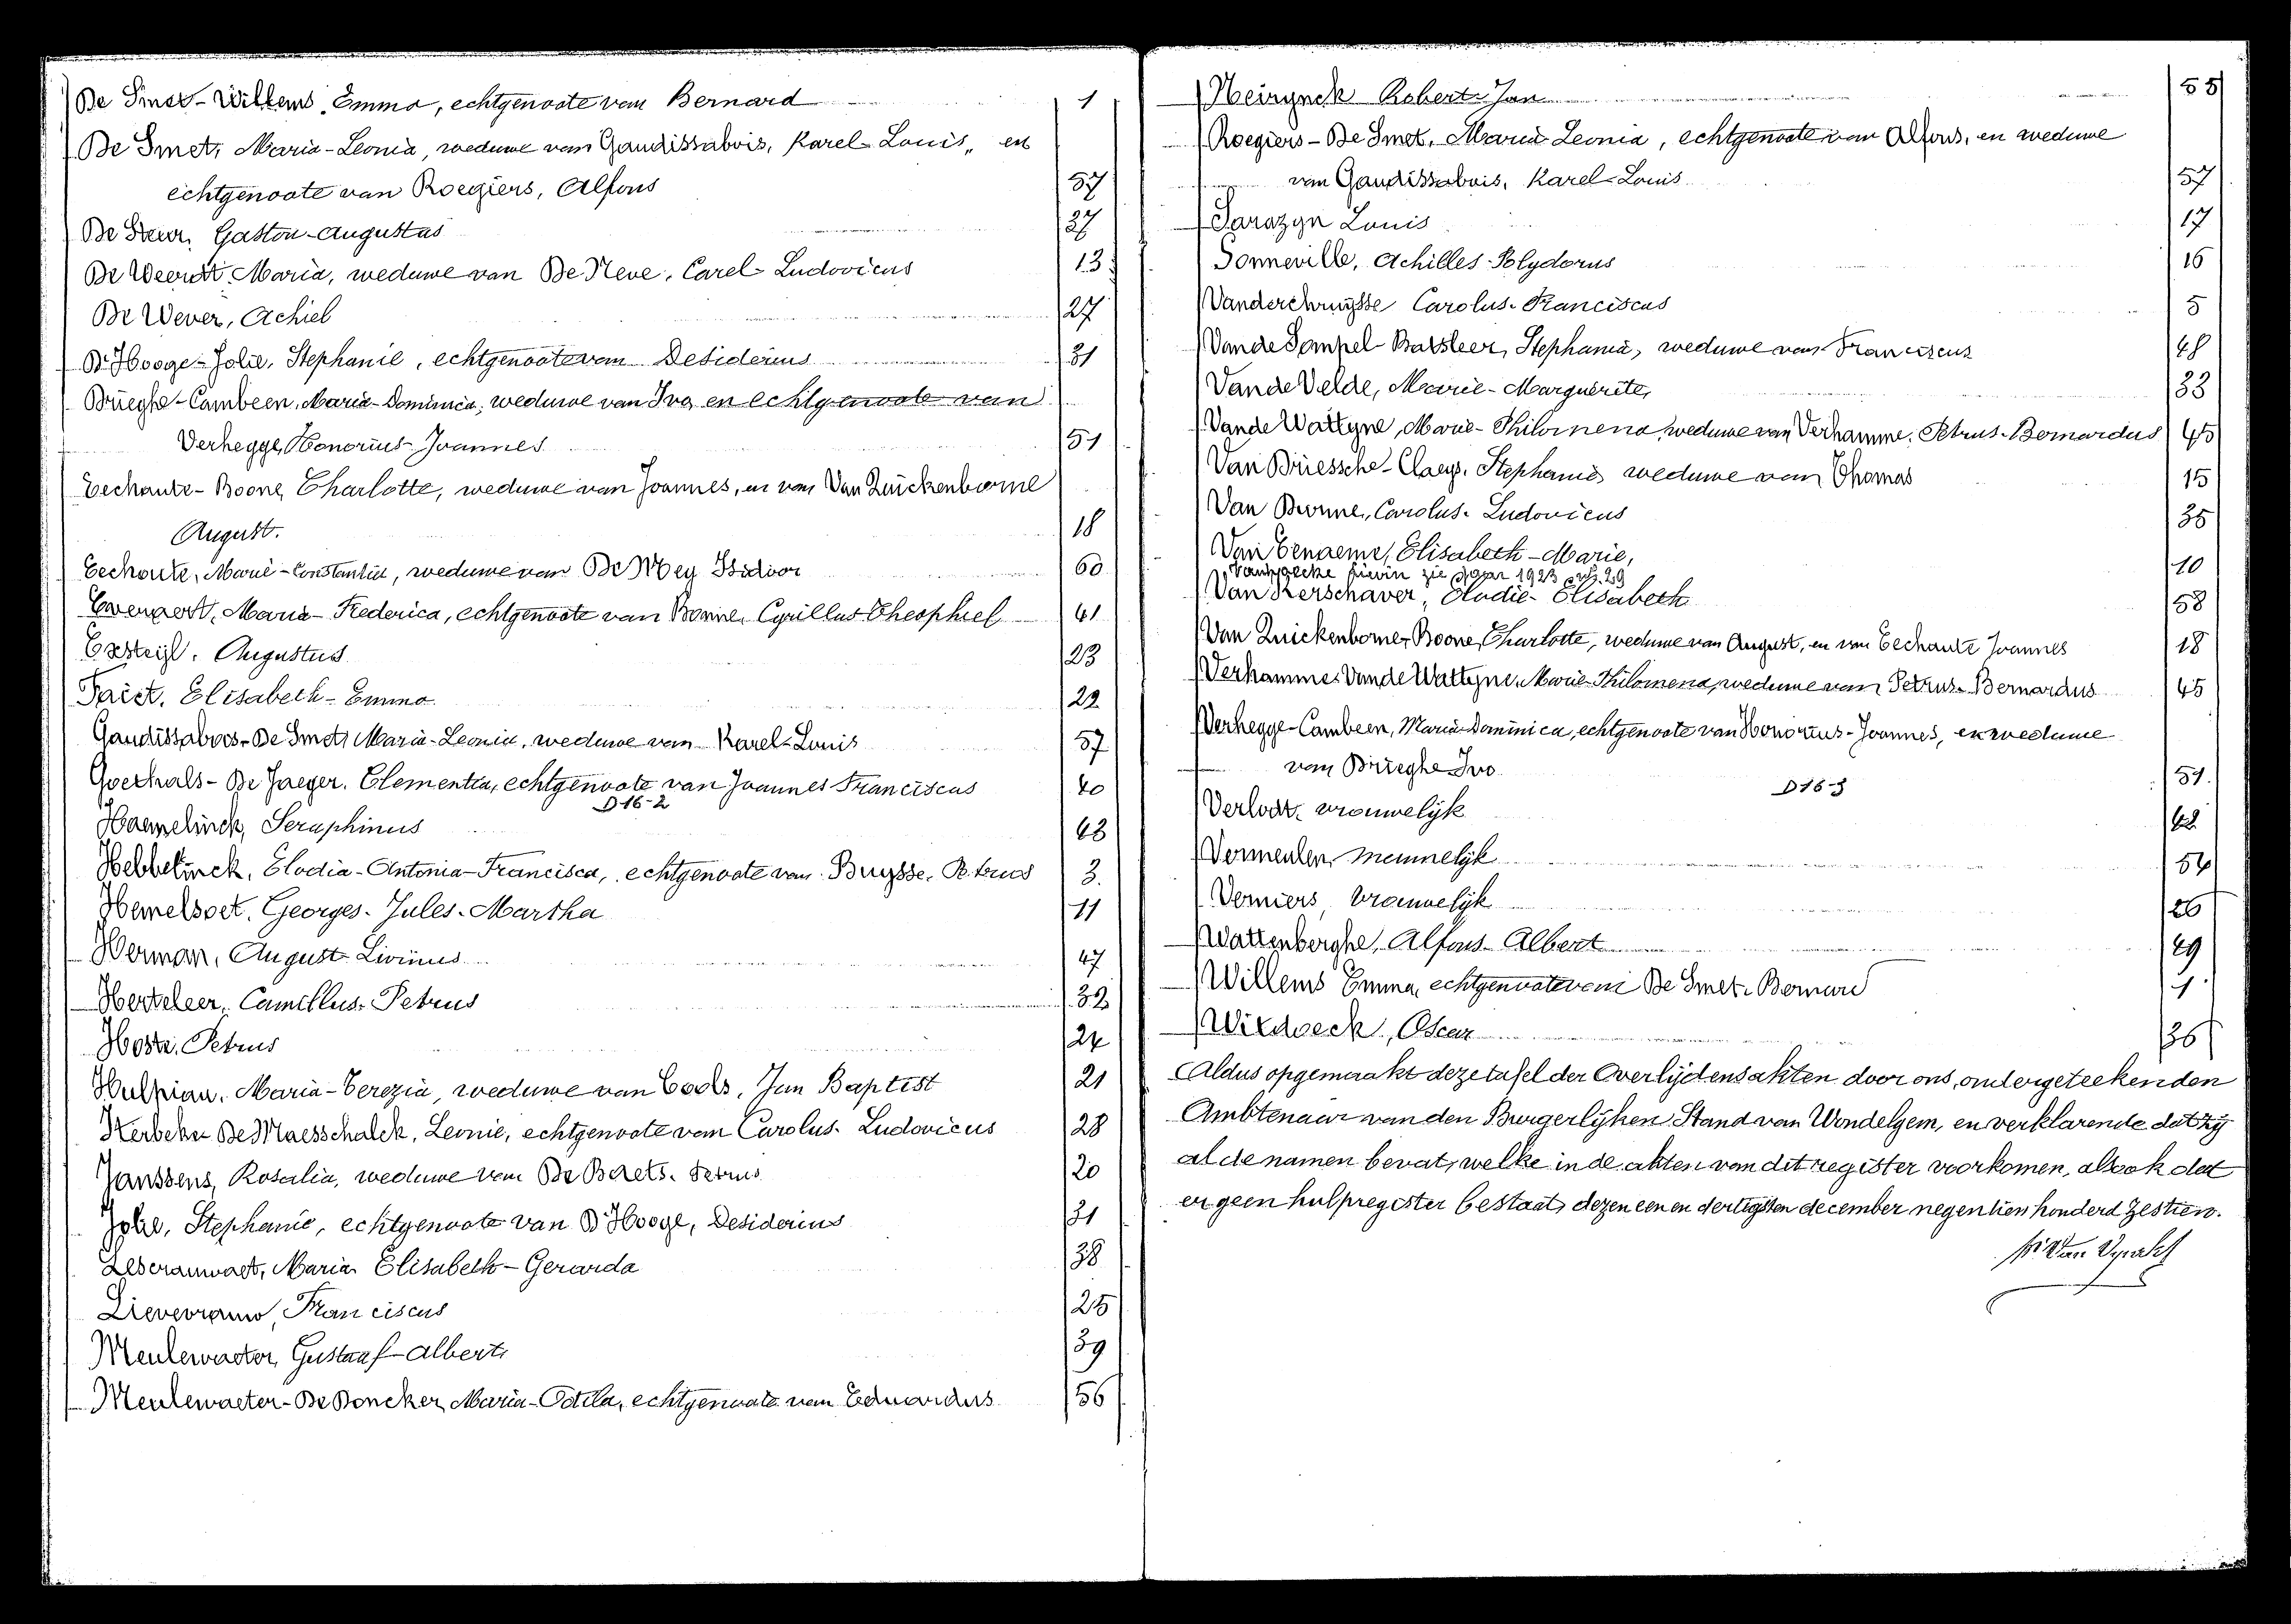 De Smet-Willems, Emma, echtgenoote van Bernard 1
De Smet, Maria-Leonia, weduwe van Gaudissabois, Karel-Louis, en
echtgenoote van Roegiers, Alfons 57
De Steur, Gaston-Augustus 37
De Weerdt Maria, weduwe van De Neve, Carel-Ludovicus 13
De Wever, Achiel 27
D'Hooge-Jolie, Stephanie, echtgenoote van Desiderius 31
Brieghe-Cambeen, Maria-Dominica, weduwe van Ivo en echtgenoote van
Verhegge, Honorius-Joannes 51
Eechaute-Boone, Charlotte, weduwe van Joannes, en van Van Quickenborne
August. 18
Eechoute, Marie-Constantia, weduwe van De Mey Isidoor 60
Everaert, Maria-Frederica, echtgenoote van Bonne, Cyrillus Theophiel 41
Exsteyl, Augustus 23
Faict, Elisabeth-Emma 22
Gaudissabois-De Smet, Maria-Leonia, weduwe van Karel-Louis 57
Goethals-De Jaeger, Clementia, echtgenoote van Joannes Franciscus 40
D16-2
Haemelinck, Seraphinus 43
Hebbelinck, Elodia-Antonia-Francisca, echtgenoote van Buysse, Petrus 3.
Hemelsoet, Georges-Jules-Martha 11
Herman, August-Livinus 47
Herteleer, Camillus-Petrus 32
Hoste, Petrus 24
Hulpiau, Maria-Terezia, weduwe van Cools, Jan Baptist 21
De Maesschalck, Leonie, echtgenoote van Carolus-Ludovicus 28
Janssens, Rosalia, weduwe van De Baets-Petrus 20
Jolie, Stephanie, echtgenoote van D'Hooge, Desiderius 31
Maria Elisabeth-Gerarda 38
Lievevrouw, Franciscus 25
Meulewaeter, Gustaaf-Albert 39
Meulewaeter-De Doncker, Maria-Odila, echtgenoote van Eduardus 56
Neirynck Robert-Jan 55
Roegiers-De Smet, Maria Leonia, echtgenoote van Alfons, en weduwe
van Gaudissabois, Karel-Louis 57
Sarazyn Louis 17
Sonneville, Achilles-Polydorus 16
Vandercruysse Carolus-Franciscus 5
Van de Sompel-Batsleer, Stephania, weduwe van Franciscus 48
Van de Velde, Marie-Marguerite, 33
Van de Wattyne, Marie-Philomena, weduwe van Verhamme, Petrus-Bernardus 45
Van Driessche-Claeys, Stephanie weduwe van Thomas 15
Van Durme, Carolus-Ludovicus 35
Van Eenaeme, Elisabeth-Marie, 10
zie jaar 1923 29
Van Kerschaver, Elodie-Elisabeth 58
Van Quickenborne-Boone, Charlotte, weduwe van August, en van Eechaute Joannes 18
Verhamme-Van de Wattyne, Marie-Philomena, weduwe van Petrus-Bernardus 45
Verhegge-Cambeen, Maria-Dominica, echtgenoote van Honorius-Joannes, en weduwe
van Brieghe Ivo 51.
D16-3
Verlodt, vrouwelijk 42
Vermeulen, mannelijk 54
Verniers, vrouwelijk 26
Wattenberghe, Alfons-Albert 49
Willems Emma, echtgenoote van De Smet-Bernard 1.
Wildoeck, Oscar 36
Aldus opgemaakt deze tafel der Overlijdensakten door ons, ondergeteekenden
Ambtenaar van den Burgerlijken Stand van Wondelgem, en verklarende dat zij
al de namen bevat, welke in de akten van dit register voorkomen, alsook dat
er geen hulpregister bestaat, dezen een en dertigsten december negentien honderd zestien.